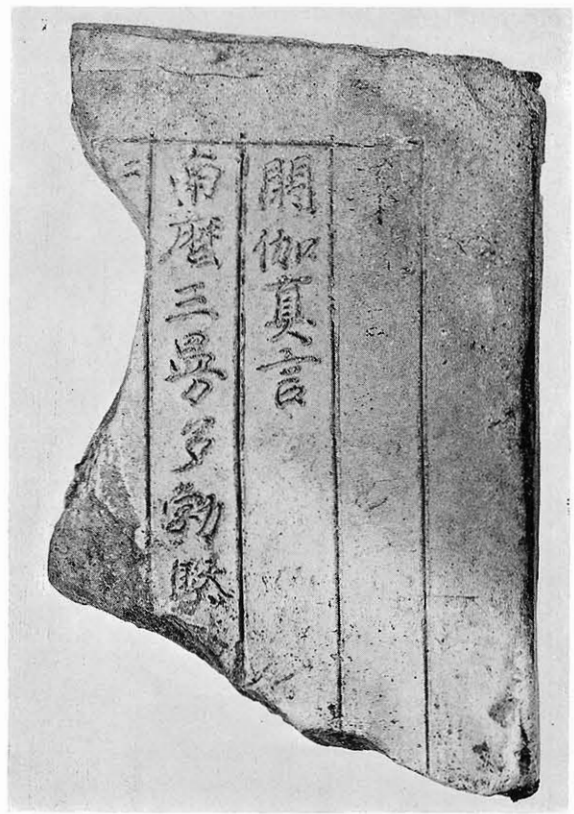 閼伽真言
南麼三曼多勃馱
二